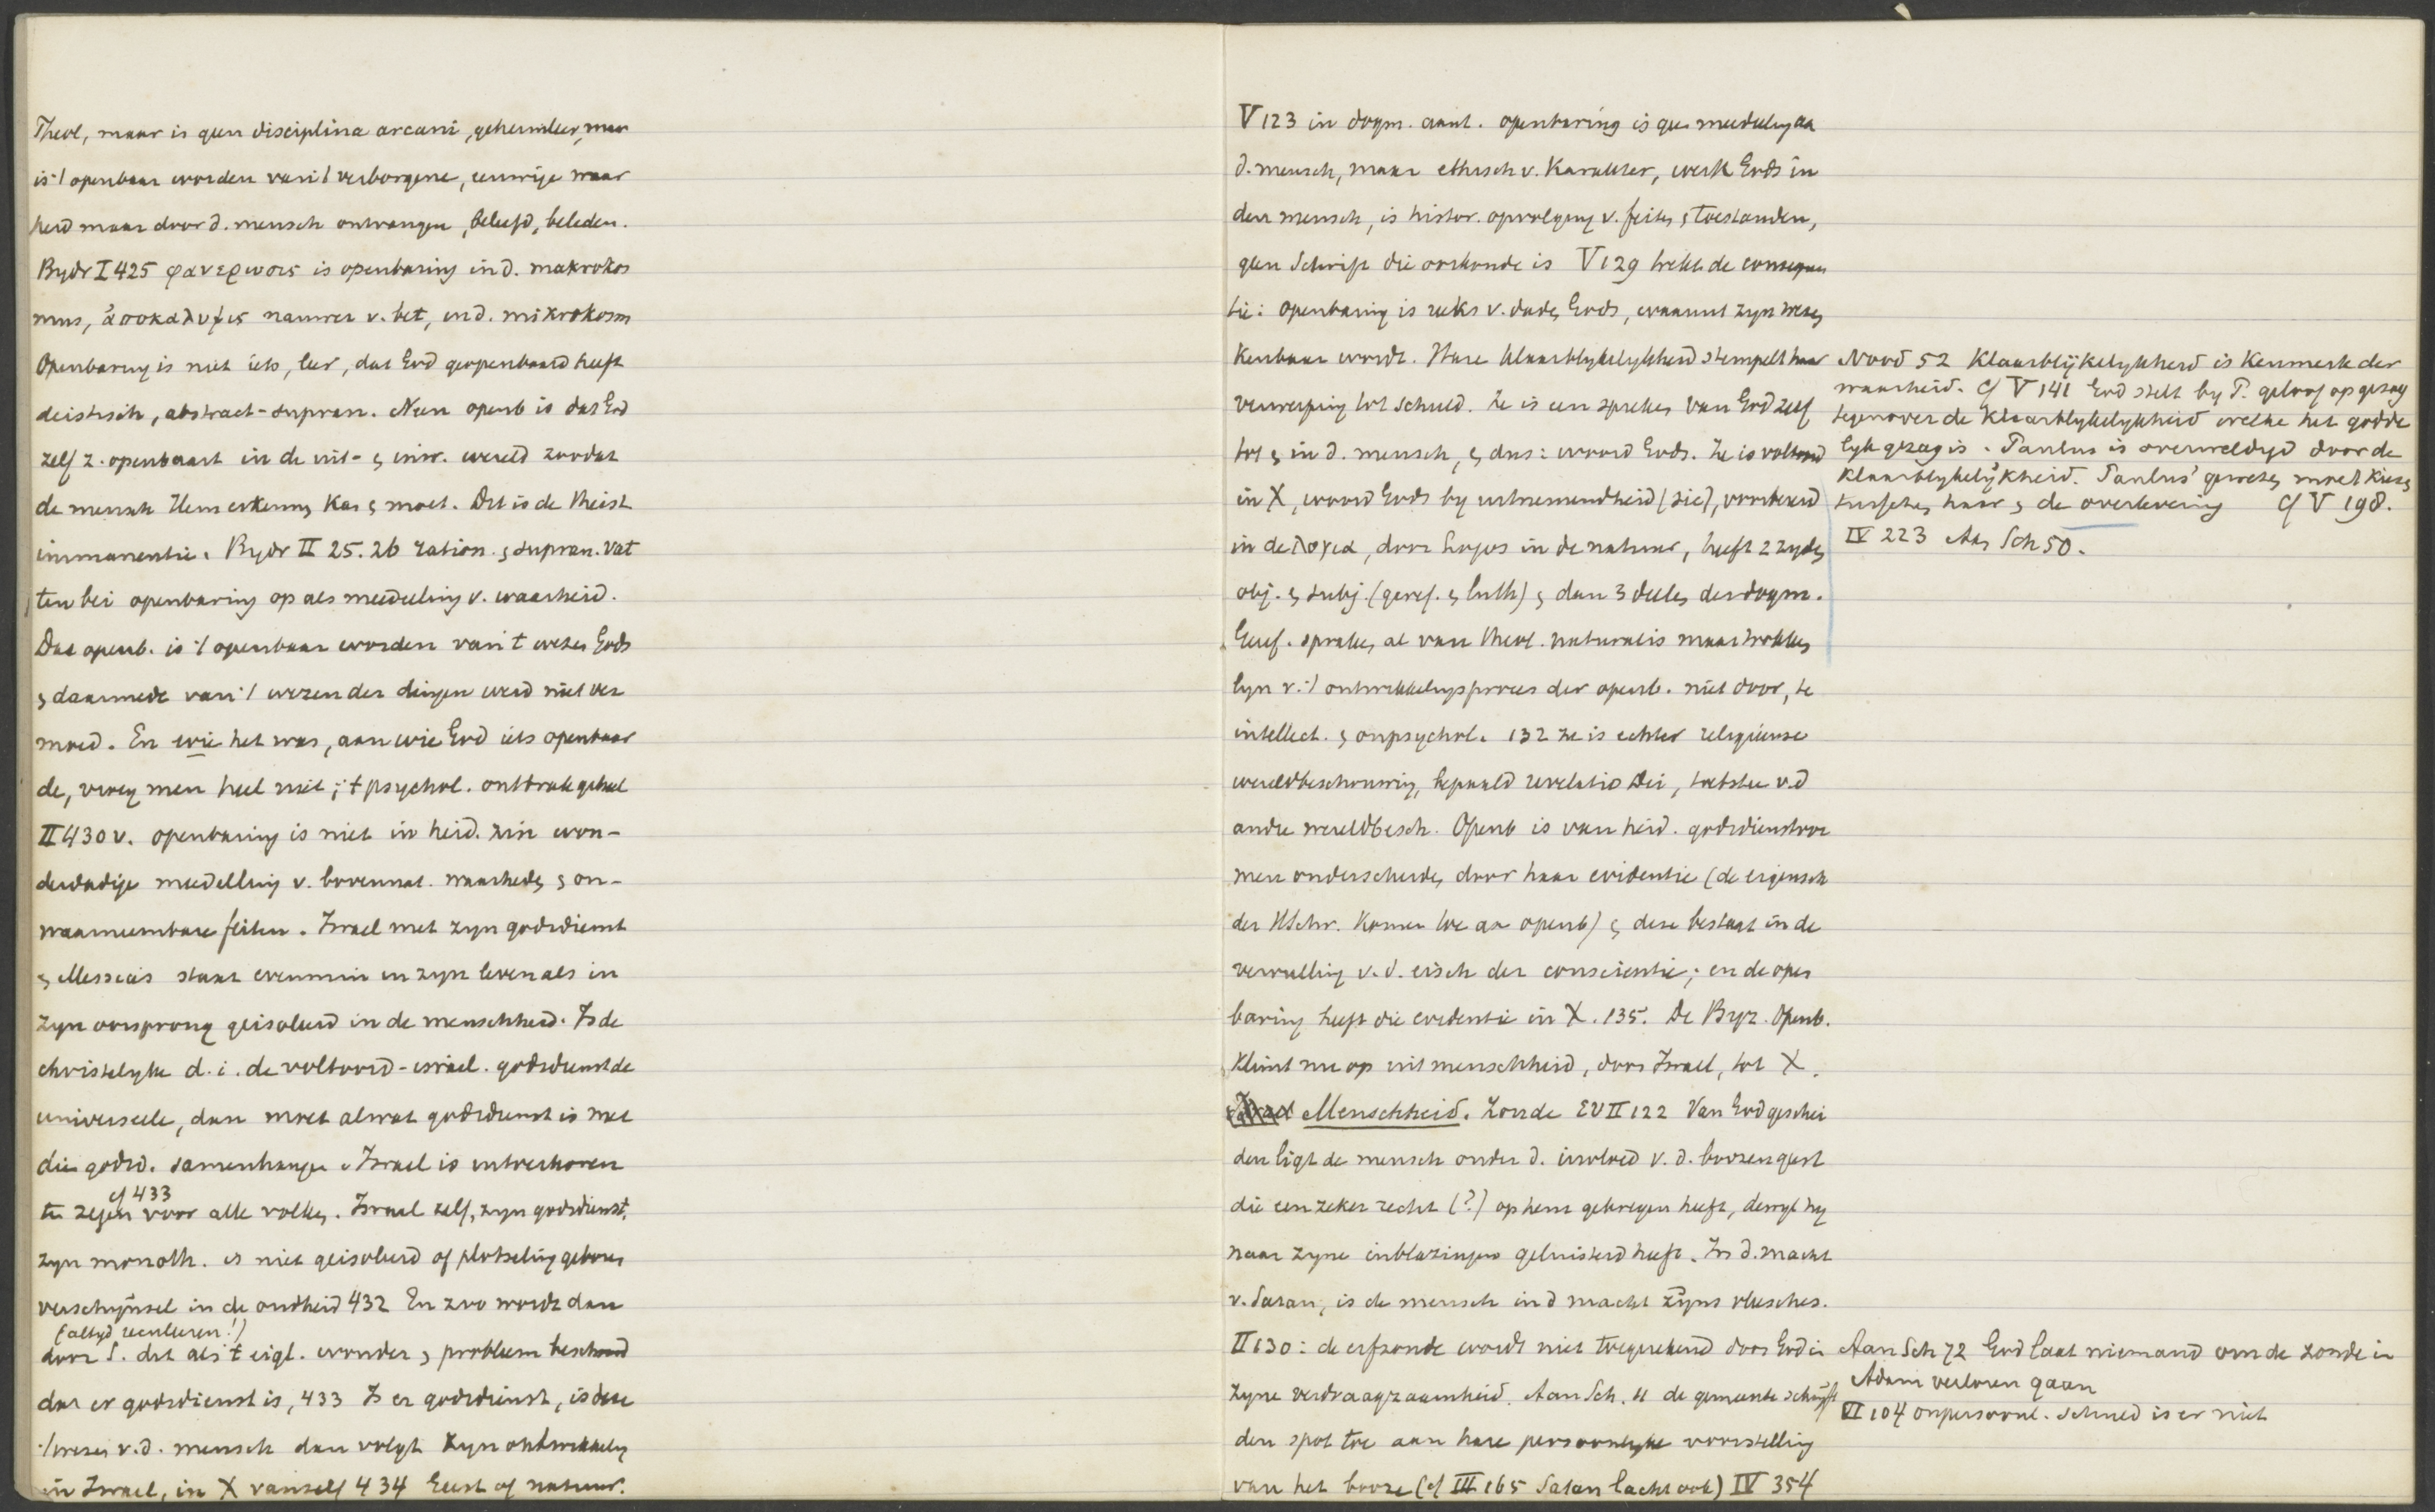 Theol, maar is geen disciplina arcani, geheimleer, maar
is 't openbaar worden van 't verborgene, eeuwige waar
heid maar door d. mensch ontvangen, beleefd, beleden.
Bydr I 425 φανερωσις is openbaring in d. makrokos
mus, ἀποκαλυψις nauwer v. bet, in d. mikrokosm
Openbaring is niet iets, leer, dat God geopenbaard heeft
deistisch, abstract-supran. Neen openb is dat God
zelf z. openbaart in de uit- & inw. wereld zoodat
de mensch Hem erkennen kan & moet. Dit is de theist
immanentie. Bydr II 25. 26 ration. & supran. vat
ten bei openbaring op als meedeeling v. waarheid.
Dat openb. is 't openbaar worden van 't wezen Gods
& daarmede van 't wezen der dingen werd niet ver
moed. En wie het was, aan wie God iets openbaar
de, vroeg men heel niet; 't psychol. ontbrak geheel
II 430 v. openbaring is niet in heid. zin won-
derdadige meedeeling v. bovennat. waarheden & on-
waarneembare feiten. Israel met zyn godsdienst
& Messias staat evenmin in zyn leven als in
zyn oorsprong geisoleerd in de menschheid. Is de
christelyke d.i. de voltooid-israel. godsdienst de
universeele, dan moet alwat godsdienst is met
die godsd. samenhangen. Israel is uitverkoren
cf 433
ten zegen voor alle volken. Israel zelf, zyn godsdienst,
zyn monoth. is niet geisoleerd of plotseling geboren
verschijnsel in de oudheid 432 En zoo wordt dan
(altyd reculeren!)
door S. dit als 't eigl. wonder & probleem beschouwd
dat er godsdienst is, 433 Is er godsdienst, is deze
't wezen v.d. mensch dan volgt zyn ontwikkeling
in Israel, in X vanzelf 434 Geest of natuur.
V 123 in dogm. aant. openbaring is geen meedeeling aan
d. mensch, maar ethisch v. karakter, werk Gods in
den mensch, is histor. opvolging v. feiten & toestanden,
geen Schrift die oorkonde is V 129 trekt de consequen
tie: openbaring is reeks v. daden Gods, waaruit zyn wezen
kenbaar wordt. Hare klaarblykelykheid stempelt haar
verwerping tot schuld. Ze is een spreken van God zelf
tot & in d. mensch, & dus: woord Gods. Ze is voltooid
in X, woord Gods by uitnemendheid (sic), voorbereid
in de λογια, door Logos in de natuur, heeft 2 zyden
obj. & subj. (geref. & luth) & dan 3 deelen der dogm.
Geref. spraken al van theol. naturalis maar trokken
lyn v. 't ontwikkelingsproces der openb. niet door, te
intellect. & onpsychol. 132 ze is echter religieuse
wereldbeschouwing, bepaald revelatio Dei, toetssteen v.d
andre wereldbesch. Openb is van heid. godsdienstvor
men onderscheiden door haar evidentie (de eigensch
der HSchr. komen toe aan openb) & deze bestaat in de
vervulling v.d. eisch der conscientie; en de open
baring heeft die evidentie in X. 135. De Byz. Openb.
klimt nu op uit menschheid, door Israel, tot X.
Menschheid. Zonde EV II 122 Van God geschei
den ligt de mensch onder d. invloed v.d. boozen geest
die een zeker recht (?) op hem gekregen heeft, dewyl hy
naar zyne inblazingen geluisterd heeft. In d. macht
v. Satan, is de mensch in d macht zyns vleesches.
II 130: de erfzonde wordt niet toegerekend door God in
zyne verdraagzaamheid. Aan Sch. 11 de gemeente schryft
den spot toe aan hare persoonlyke voorstelling
van het booze (cf III 165 Satan lacht ook) IV 354
Nood 52 Klaarblijkelykheid is kenmerk der
waarheid. cf V 141 God stelt by P. geloof op gezag
tegenover de klaarblykelykheid welke het godde
lyk gezag is. Paulus is overweldigd door de
klaarblykelijkheid. Paulus' geweten moet kiezen
tusschen haar & de overlevering cf V 198.
IV 223 Aan Sch 50.
Aan Sch 72 God laat niemand om de zonde in
Adam verloren gaan
VI 104 onpersoonl. schuld is er niet